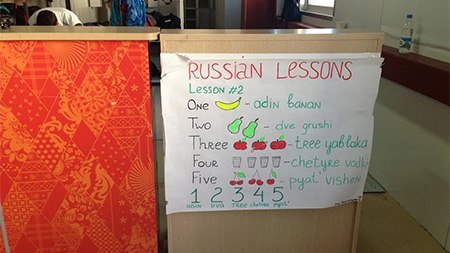 RUSSIAN LESSONS
LESSON #2
ONE - adin banan
TWO - dve grushi
Three - tree yablaka
FOUR - chetyre vodki
Five - pyat' vishen
1 2 3 4 5
odin dva tree chetyre pyat'